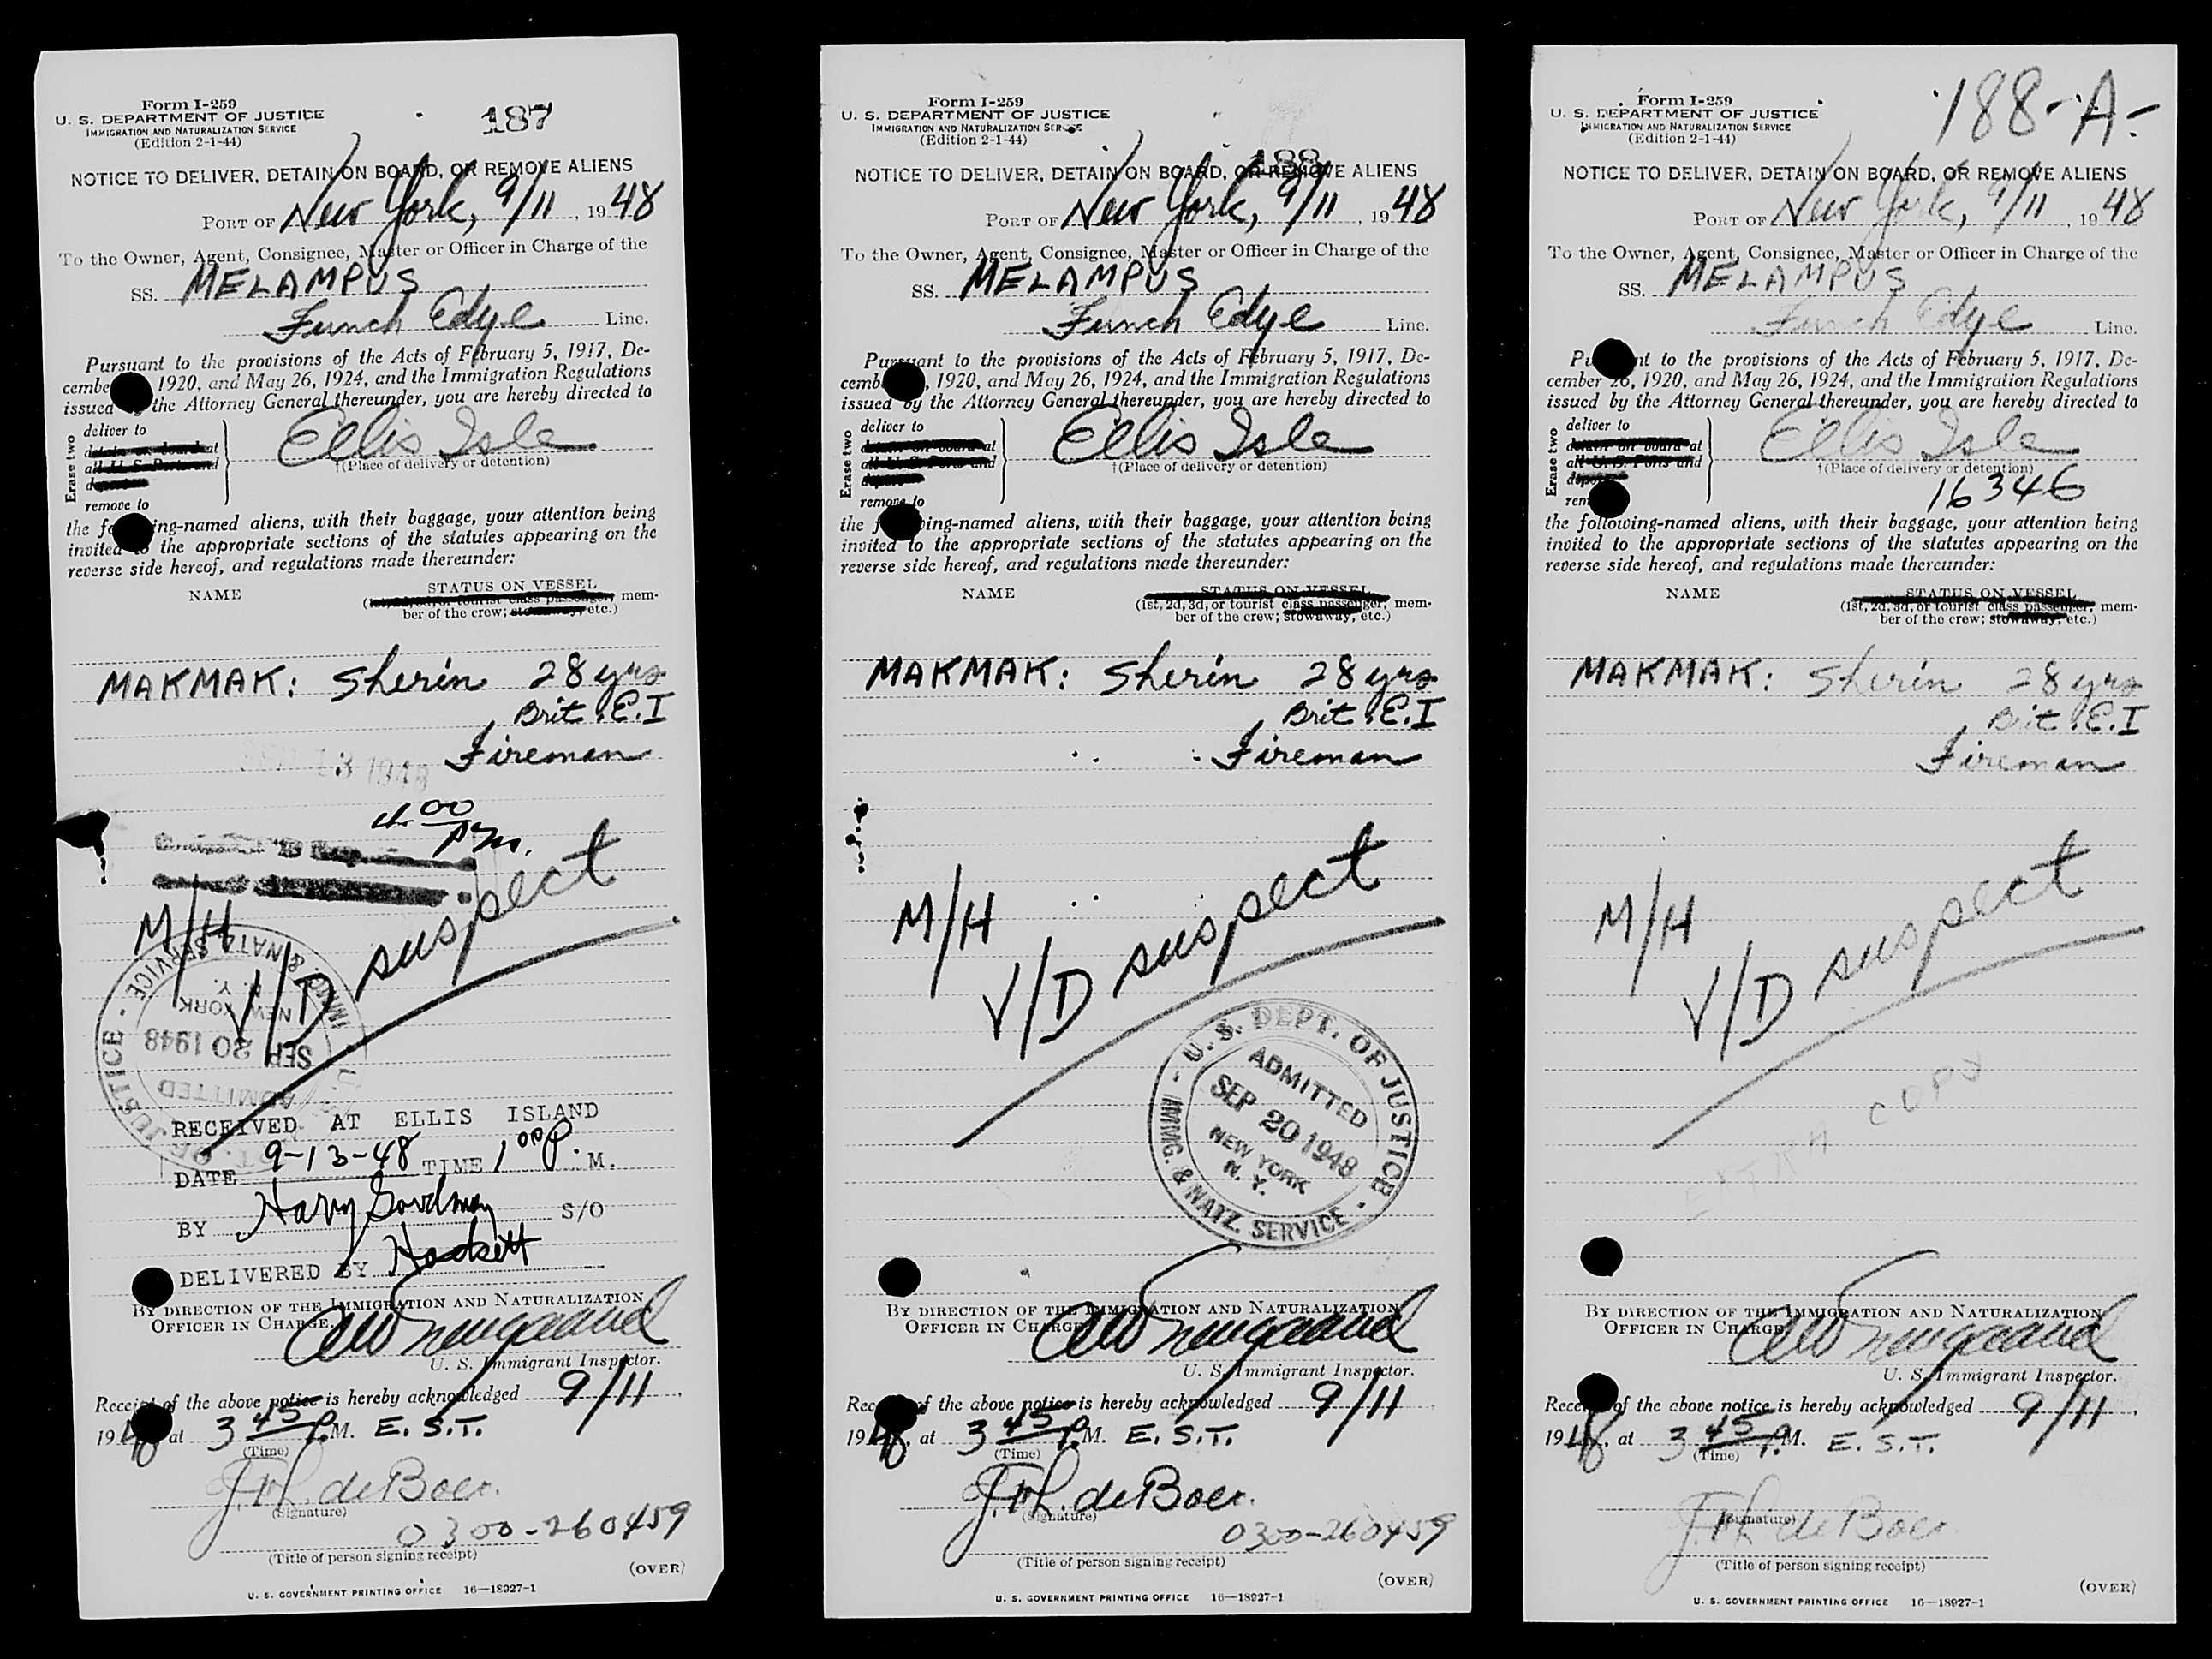 Form I-259
U. S. DEPARTMENT OF JUSTICE
IMMIGRATION AND NATURALIZATION SERVICE
(Edition 2-1-44)
187
NOTICE TO DELIVER, DETAIN ON BOARD, OR REMOVE ALIENS
PORT OF New York, 9/11, 1948
To the Owner, Agent, Consignee, Master or Officer in Charge of the
SS. MELAMPUS
Funch Edye Line.
Pursuant to the provisions of the Acts of February 5, 1917, De-
cembe 1920, and May 26, 1924, and the Immigration Regulations
issued the Attorney General thereunder, you are hereby directed to
Erase two
deliver to
detain on board at
all U. S. Ports and
deport
remove to
Ellis Isle
†(Place of delivery or detention)
the fo ing-named aliens, with their baggage, your attention being
invited to the appropriate sections of the statutes appearing on the
reverse side hereof, and regulations made thereunder:
NAME
STATUS ON VESSEL
(1st, 2d, 3d, or tourist class passenger, mem-
ber of the crew; stowaway, etc.)
MAKMAK: Sherin 28 yrs
Brit. E. I
Fireman
SEP 13 1948
4 00 PM.
M/H
V/D suspect
U. S. DEPT. OF JUSTICE - IMMG. & NATZ. SERVICE -
ADMITTED
SEP 20 1948
NEW YORK
N. Y.
RECEIVED AT ELLIS ISLAND
DATE 9-13-48 TIME 1 00 P. M.
BY Harry Goodman S/O
DELIVERED BY
BY DIRECTION OF THE IMMIGRATION AND NATURALIZATION
OFFICER IN CHARGE.
U. S. Immigrant Inspector.
Receipt of the above notice is hereby acknowledged 9/11,
1948 at 3 45 P.M. E. S. T.
(Time)
de Boer.
(Signature)
0300-260459
(Title of person signing receipt)
(OVER)
U. S. GOVERNMENT PRINTING OFFICE 16—18927-1
Form I-259
U. S. DEPARTMENT OF JUSTICE
IMMIGRATION AND NATURALIZATION SERVICE
(Edition 2-1-44)
188
NOTICE TO DELIVER, DETAIN ON BOARD, OR REMOVE ALIENS
PORT OF New York, 9/11, 1948
To the Owner, Agent, Consignee, Master or Officer in Charge of the
SS. MELAMPUS
Funch Edye Line.
Pursuant to the provisions of the Acts of February 5, 1917, De-
cemb , 1920, and May 26, 1924, and the Immigration Regulations
issued by the Attorney General thereunder, you are hereby directed to
Erase two
deliver to
detain on board at
all U. S. Ports and
deport
remove to
Ellis Isle
†(Place of delivery or detention)
the f wing-named aliens, with their baggage, your attention being
invited to the appropriate sections of the statutes appearing on the
reverse side hereof, and regulations made thereunder:
NAME
STATUS ON VESSEL
(1st, 2d, 3d, or tourist class passenger, mem-
ber of the crew; stowaway, etc.)
MAKMAK: Sherin 28 yrs
Brit. E. I
Fireman
M/H
V/D suspect
U. S. DEPT. OF JUSTICE - IMMG. & NATZ. SERVICE -
ADMITTED
SEP 20 1948
NEW YORK
N. Y.
BY DIRECTION OF THE IMMIGRATION AND NATURALIZATION
OFFICER IN CHARGE
U. S. Immigrant Inspector.
Rec f the above notice is hereby acknowledged 9/11,
1948, at 3 45 P.M. E. S. T.
(Time)
de Boer.
(Signature)
0300-260459
(Title of person signing receipt)
(OVER)
U. S. GOVERNMENT PRINTING OFFICE 16—18927-1
Form I-259
U. S. DEPARTMENT OF JUSTICE
IMMIGRATION AND NATURALIZATION SERVICE
(Edition 2-1-44)
188-A-
NOTICE TO DELIVER, DETAIN ON BOARD, OR REMOVE ALIENS
PORT OF New York, 9/11, 1948
To the Owner, Agent, Consignee, Master or Officer in Charge of the
SS. MELAMPUS
Funch Edye Line.
Pu nt to the provisions of the Acts of February 5, 1917, De-
cember 26, 1920, and May 26, 1924, and the Immigration Regulations
issued by the Attorney General thereunder, you are hereby directed to
Erase two
deliver to
detain on board at
all U. S. Ports and
depo
rem
Ellis Isle
†(Place of delivery or detention)
16346
the following-named aliens, with their baggage, your attention being
invited to the appropriate sections of the statutes appearing on the
reverse side hereof, and regulations made thereunder:
NAME
STATUS ON VESSEL
(1st, 2d, 3d, or tourist class passenger, mem-
ber of the crew; stowaway, etc.)
MAKMAK: Sherin 28 yrs
Brit. E. I
Fireman
M/H
V/D suspect
EXTRA COPY
BY DIRECTION OF THE IMMIGRATION AND NATURALIZATION
OFFICER IN CHARGE
U. S. Immigrant Inspector.
Rece of the above notice is hereby acknowledged 9/11,
1948, at 3 45 P.M. E. S. T.
(Time)
de Boer
(Signature)
(Title of person signing receipt)
(OVER)
U. S. GOVERNMENT PRINTING OFFICE 16—18927-1